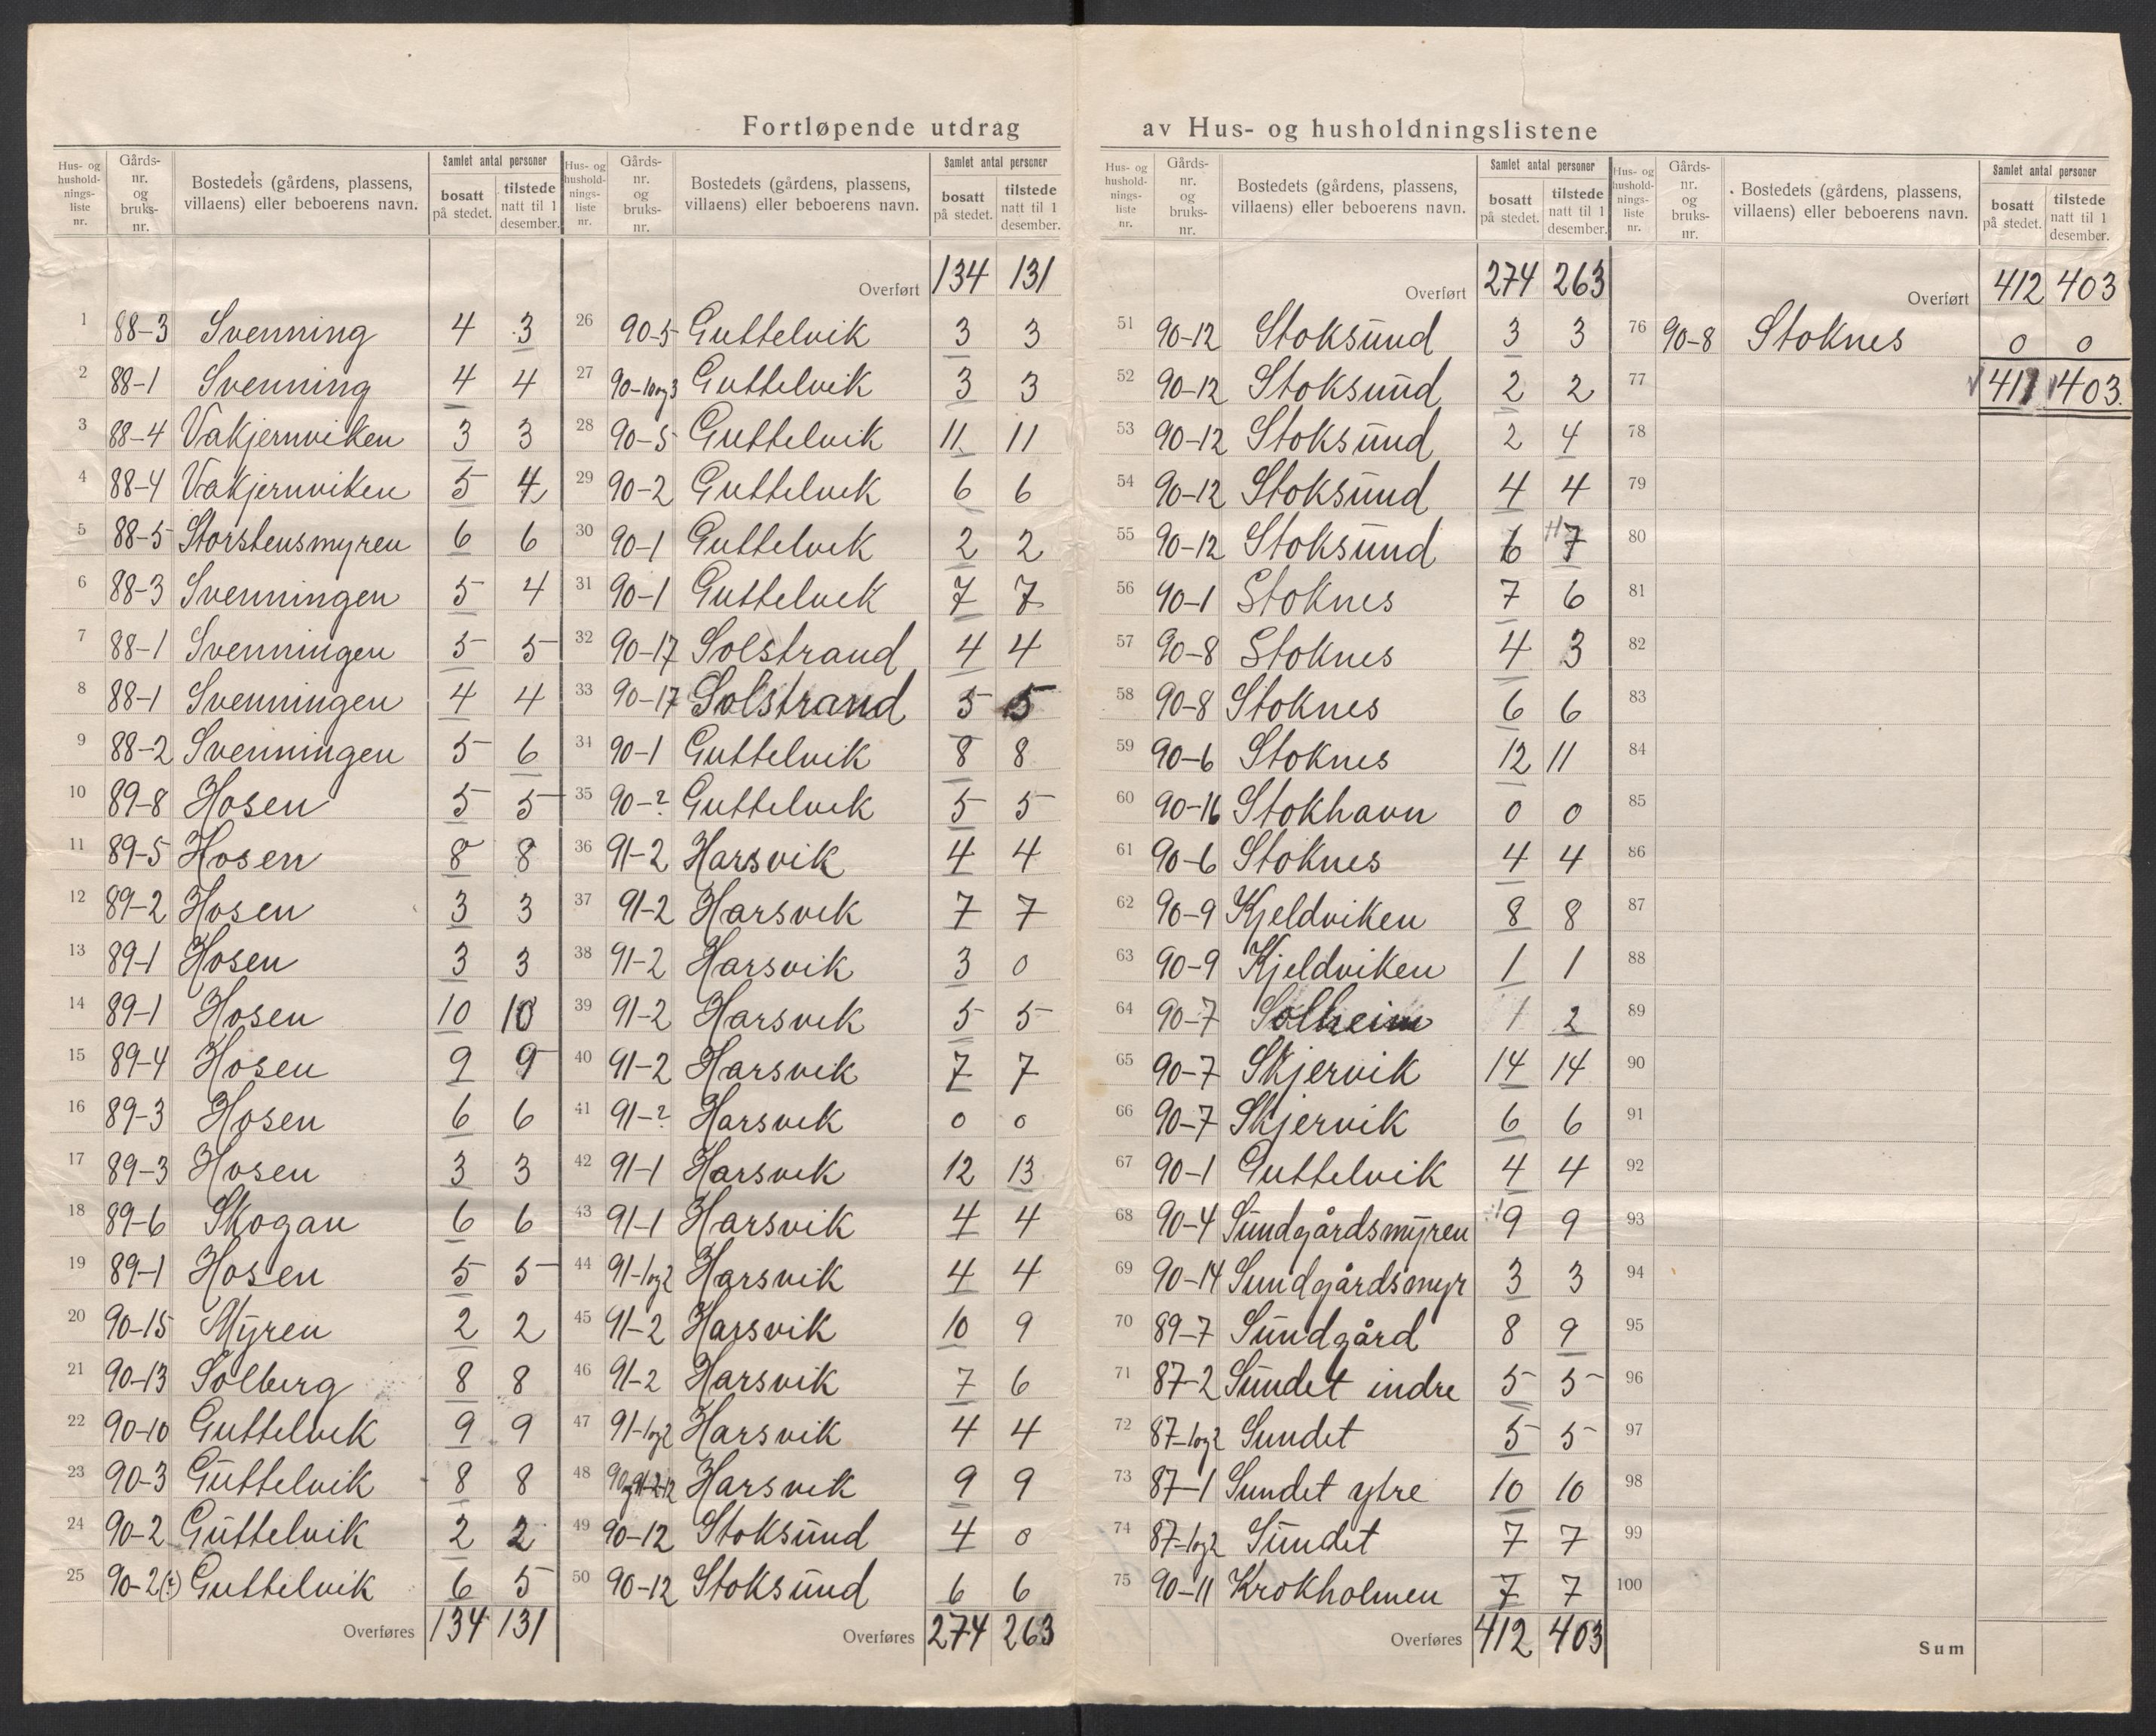 Fortløpende utdrag av Hus- og husholdningslistene
Hus- og husholdnings-liste nr. Gårds-nr. og bruks-nr. Bostedets (gårdens, plassens, villaens) eller beboerens navn. Samlet antal personer bosatt på stedet. tilstede natt til 1 desember.
1 88-3 Svenning 4 3
2 88-1 Svenning 4 4
3 88-4 Vakjernviken 3 3
4 88-4 Vakjernviken 5 4
5 88-5 Storstensmyren 6 6
6 88-3 Svenningen 5 4
7 88-1 Svenningen 5 5
8 88-1 Svenningen 4 4
9 88-2 Svenningen 5 6
10 89-8 Hosen 5 5
11 89-5 Hosen 8 8
12 89-2 Hosen 3 3
13 89-1 Hosen 3 3
14 89-1 Hosen 10 10
15 89-4 Hosen 9 9
16 89-3 Hosen 6 6
17 89-3 Hosen 3 3
18 89-6 Skogan 6 6
19 89-1 Hosen 5 5
20 90-15 Myren 2 2
21 90-13 Solberg 8 8
22 90-10 Guttelvik 9 9
23 90-3 Guttelvik 8 8
24 90-2 Guttelvik 2 2
25 90-2(?) Guttelvik 6 5
Overføres 134 131
Hus- og husholdnings-liste nr. Gårds-nr. og bruks-nr. Bostedets (gårdens, plassens, villaens) eller beboerens navn. Samlet antal personer bosatt på stedet. tilstede natt til 1 desember.
Overført 134 131
26 90-5 Guttelvik 3 3
27 90-1og3 Guttelvik 3 3
28 90-5 Guttelvik 11 11
29 90-2 Guttelvik 6 6
30 90-1 Guttelvik 2 2
31 90-1 Guttelvik 7 7
32 90-17 Solstrand 4 4
33 90-17 Solstrand 5 5
34 90-1 Guttelvik 8 8
35 90-? Guttelvik 5 5
36 91-2 Harsvik 4 4
37 91-2 Harsvik 7 7
38 91-2 Harsvik 3 0
39 91-2 Harsvik 5 5
40 91-2 Harsvik 7 7
41 91-? Harsvik 0 0
42 91-1 Harsvik 12 13
43 91-1 Harsvik 4 4
44 91-1og2 Harsvik 4 4
45 91-2 Harsvik 10 9
46 91-2 Harsvik 7 6
47 91-1og2 Harsvik 4 4
48 Harsvik 9 9
49 90-12 Stoksund 4 0
50 90-12 Stoksund 6 6
Overføres 274 263
Hus- og husholdnings-liste nr. Gårds-nr. og bruks-nr. Bostedets (gårdens, plassens, villaens) eller beboerens navn. Samlet antal personer bosatt på stedet. tilstede natt til 1 desember.
Overført 274 263
51 90-12 Stoksund 3 3
52 90-12 Stoksund 2 2
53 90-12 Stoksund 2 4
54 90-12 Stoksund 4 4
55 90-12 Stoksund 6 7
56 90-1 Stoknes 7 6
57 90-8 Stoknes 4 3
58 90-8 Stoknes 6 6
59 90-6 Stoknes 12 11
60 90-16 Stokhavn 0 0
61 90-6 Stoknes 4 4
62 90-9 Kjeldviken 8 8
63 90-9 Kjeldviken 1 1
64 90-7 Solheim 1 2
65 90-7 Skjervik 14 14
66 90-7 Skjervik 6 6
67 90-1 Guttelvik 4 4
68 90-4 Sundgårdsmyren 9 9
69 90-14 Sundgårdsmyr 3 3
70 89-7 Sundgård 8 9
71 87-2 Sundet indre 5 5
72 87-1og2 Sundet 5 5
73 87-1 Sundet ytre 10 10
74 87-1og2 Sundet 7 7
75 90-11 Krokholmen 7 7
Overføres 412 403
Hus- og husholdnings-liste nr. Gårds-nr. og bruks-nr. Bostedets (gårdens, plassens, villaens) eller beboerens navn. Samlet antal personer bosatt på stedet. tilstede natt til 1 desember.
Overført 412 403
76 90-8 Stoknes 0 0
77 411 403
78
79
80
81
82
83
84
85
86
87
88
89
90
91
92
93
94
95
96
97
98
99
100
Sum